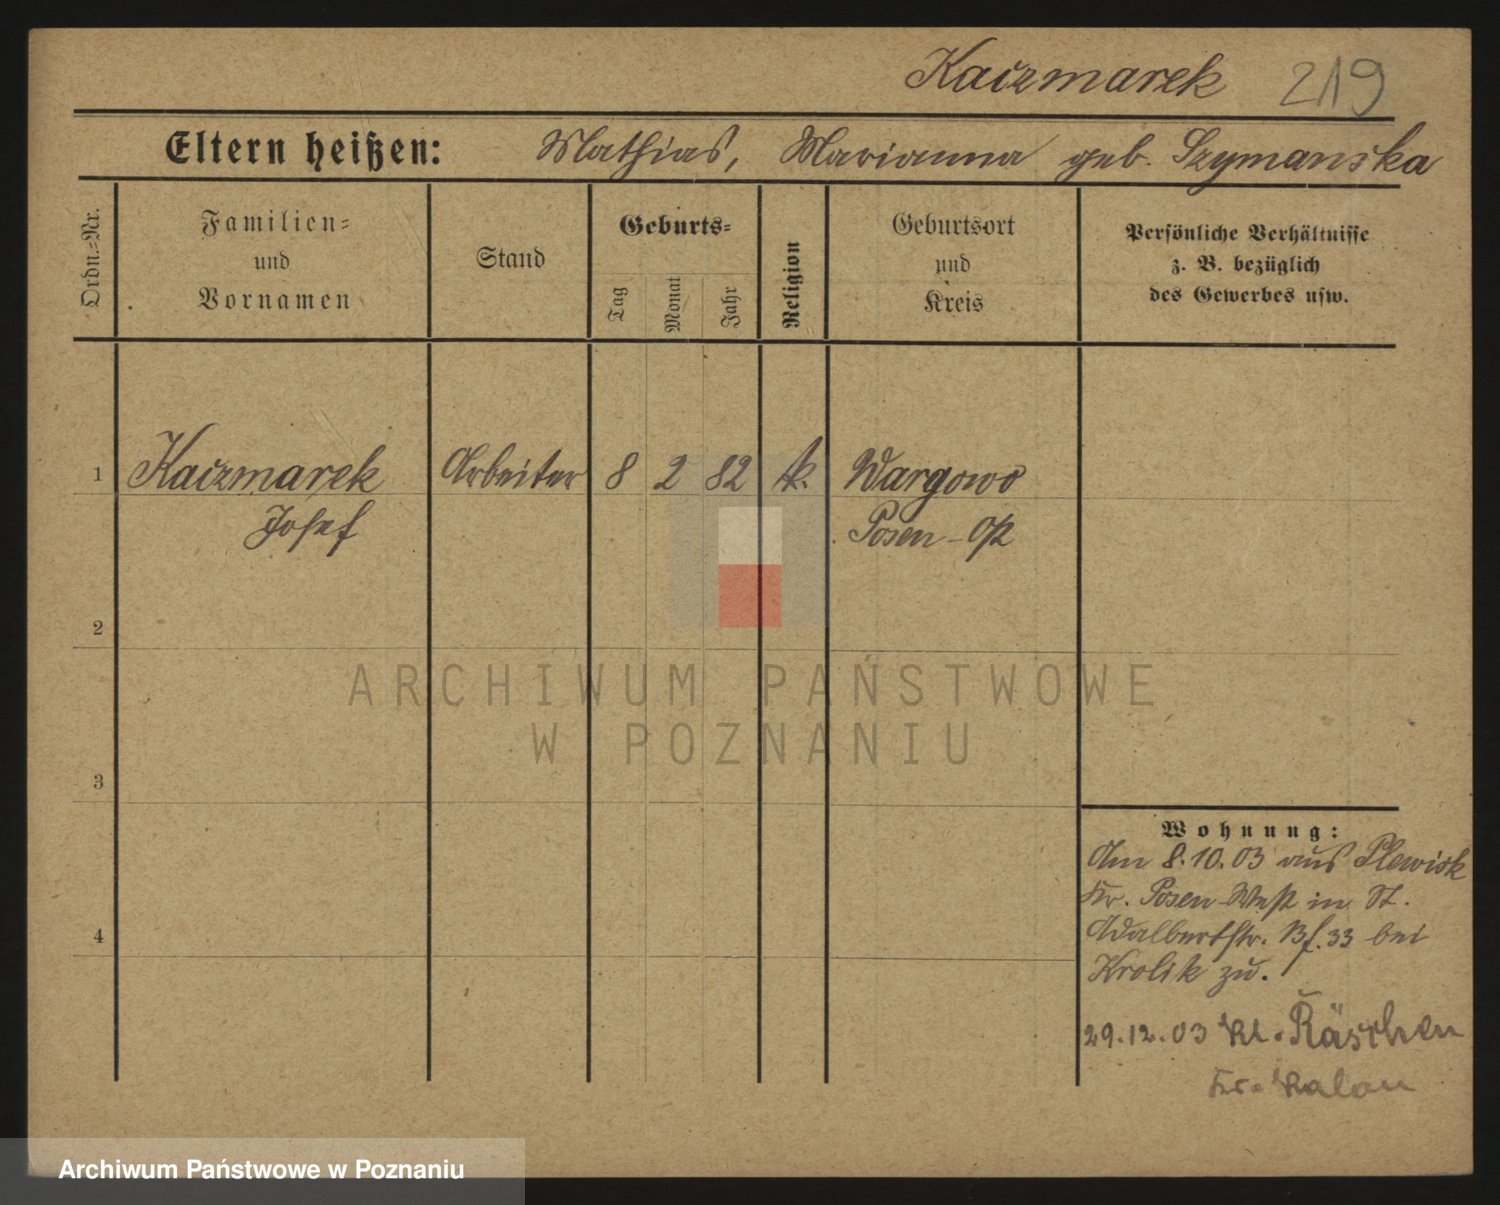 Kaczmarek 219
Eltern heißen: Mathias, Marianna geb. Szymanska
Ordn.=Nr.
Familien=
und
Vornamen
Stand
Geburts=
Tag
Monat
Jahr
Religion
Geburtsort
und
Kreis
Persönliche Verhältnisse
z. B. bezüglich
des Gewerbes usw.
1 Kaczmarek Arbeiter 8 2 82 k. Wargowo
Josef Posen-Ost
2
3
4
Wohnung:
Am 8.10.03 aus Plewisk
Kr. Posen-West in St.
Adalbertstr. 33 bei
Krolik zu.
29.12.03 Kl. Räschen
Kr. Kalau
ARCHIWUM PAŃSTWOWE
W POZNANIU
Archiwum Państwowe w Poznaniu